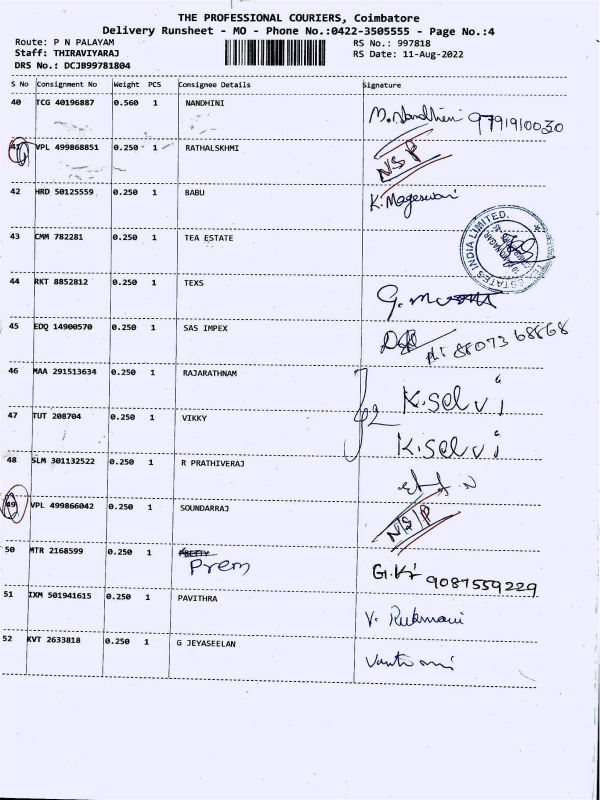 THE PROFESSIONAL COURIERS, Coimbatore
Delivery Runsheet - MO - Phone No.:0422-3505555 - Page No.:4
Route: P N PALAYAM
RS No.: 997818
Staff: THIRAVIYARAJ
RS Date: 11-Aug-2022
DRS No.: DCJB99781804
S No Consignment No Weight PCS Consignee Details Signature
40 TCG 40196887 0.560 1 NANDHINI M. Nandhini 9791910030
41 VPL 499868851 0.250 1 RATHALSKHMI NSP
42 HRD 50125559 0.250 1 BABU K. Mageswari
43 CMM 782281 0.250 1 TEA ESTATE
ESTATES INDIA LIMITED.
44 RKT 8852812 0.250 1 TEXS G.
45 EDQ 14900570 0.250 1 SAS IMPEX 88073 68868
46 MAA 291513634 0.250 1 RAJARATHNAM K. selvi
47 TUT 208704 0.250 1 VIKKY K. selvi
48 SLM 301132522 0.250 1 R PRATHIVERAJ
49 VPL 499866042 0.250 1 SOUNDARRAJ NSP
50 MTR 2168599 0.250 1 Prem G.K 9087559229
51 IXM 501941615 0.250 1 PAVITHRA V. Rukmani
52 KVT 2633818 0.250 1 G JEYASEELAN